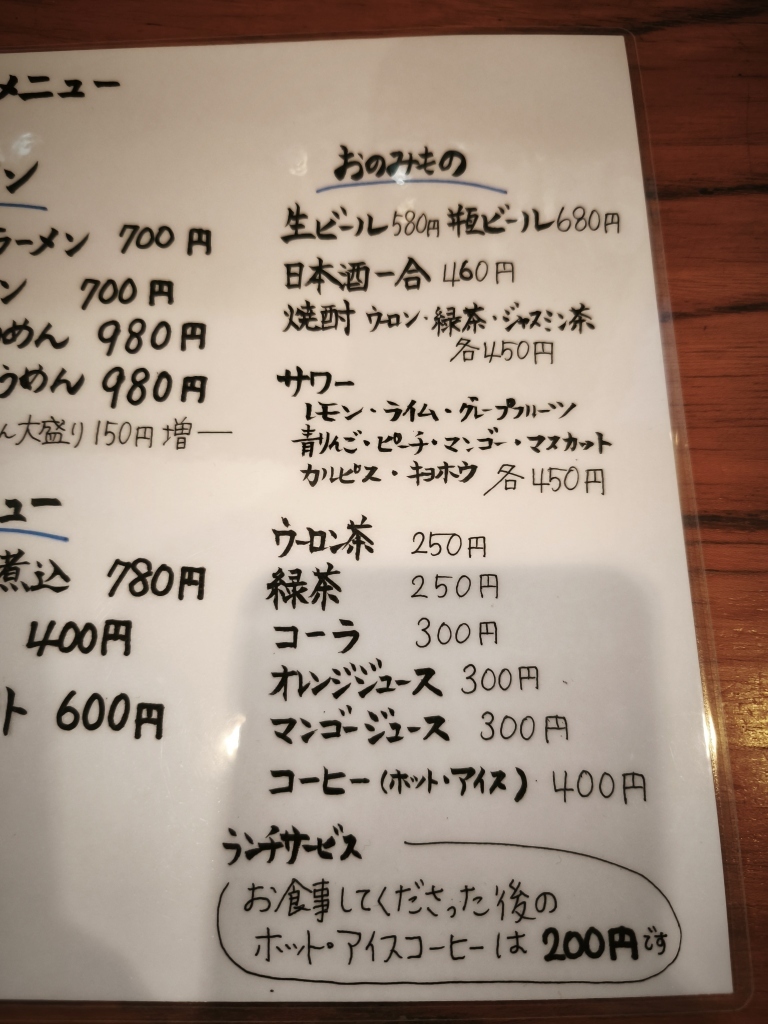 メニュー
ン
ラーメン 700円
ン 700円
めん 980円
うめん 980円
ん大盛り150円増
ュー
煮込 780円
400円
ト 600円
おのみもの
生ビール580円 瓶ビール680円
日本酒一合 460円
焼酎 ウーロン・緑茶・ジャスミン茶
各450円
サワー
レモン・ライム・グレープフルーツ
青りんご・ピーチ・マンゴー・マスカット
カルピス・キョホウ 各450円
ウーロン茶 250円
緑茶 250円
コーラ 300円
オレンジジュース 300円
マンゴージュース 300円
コーヒー(ホット・アイス) 400円
ランチサービス
お食事してくださった後の
ホット・アイスコーヒーは 200円です